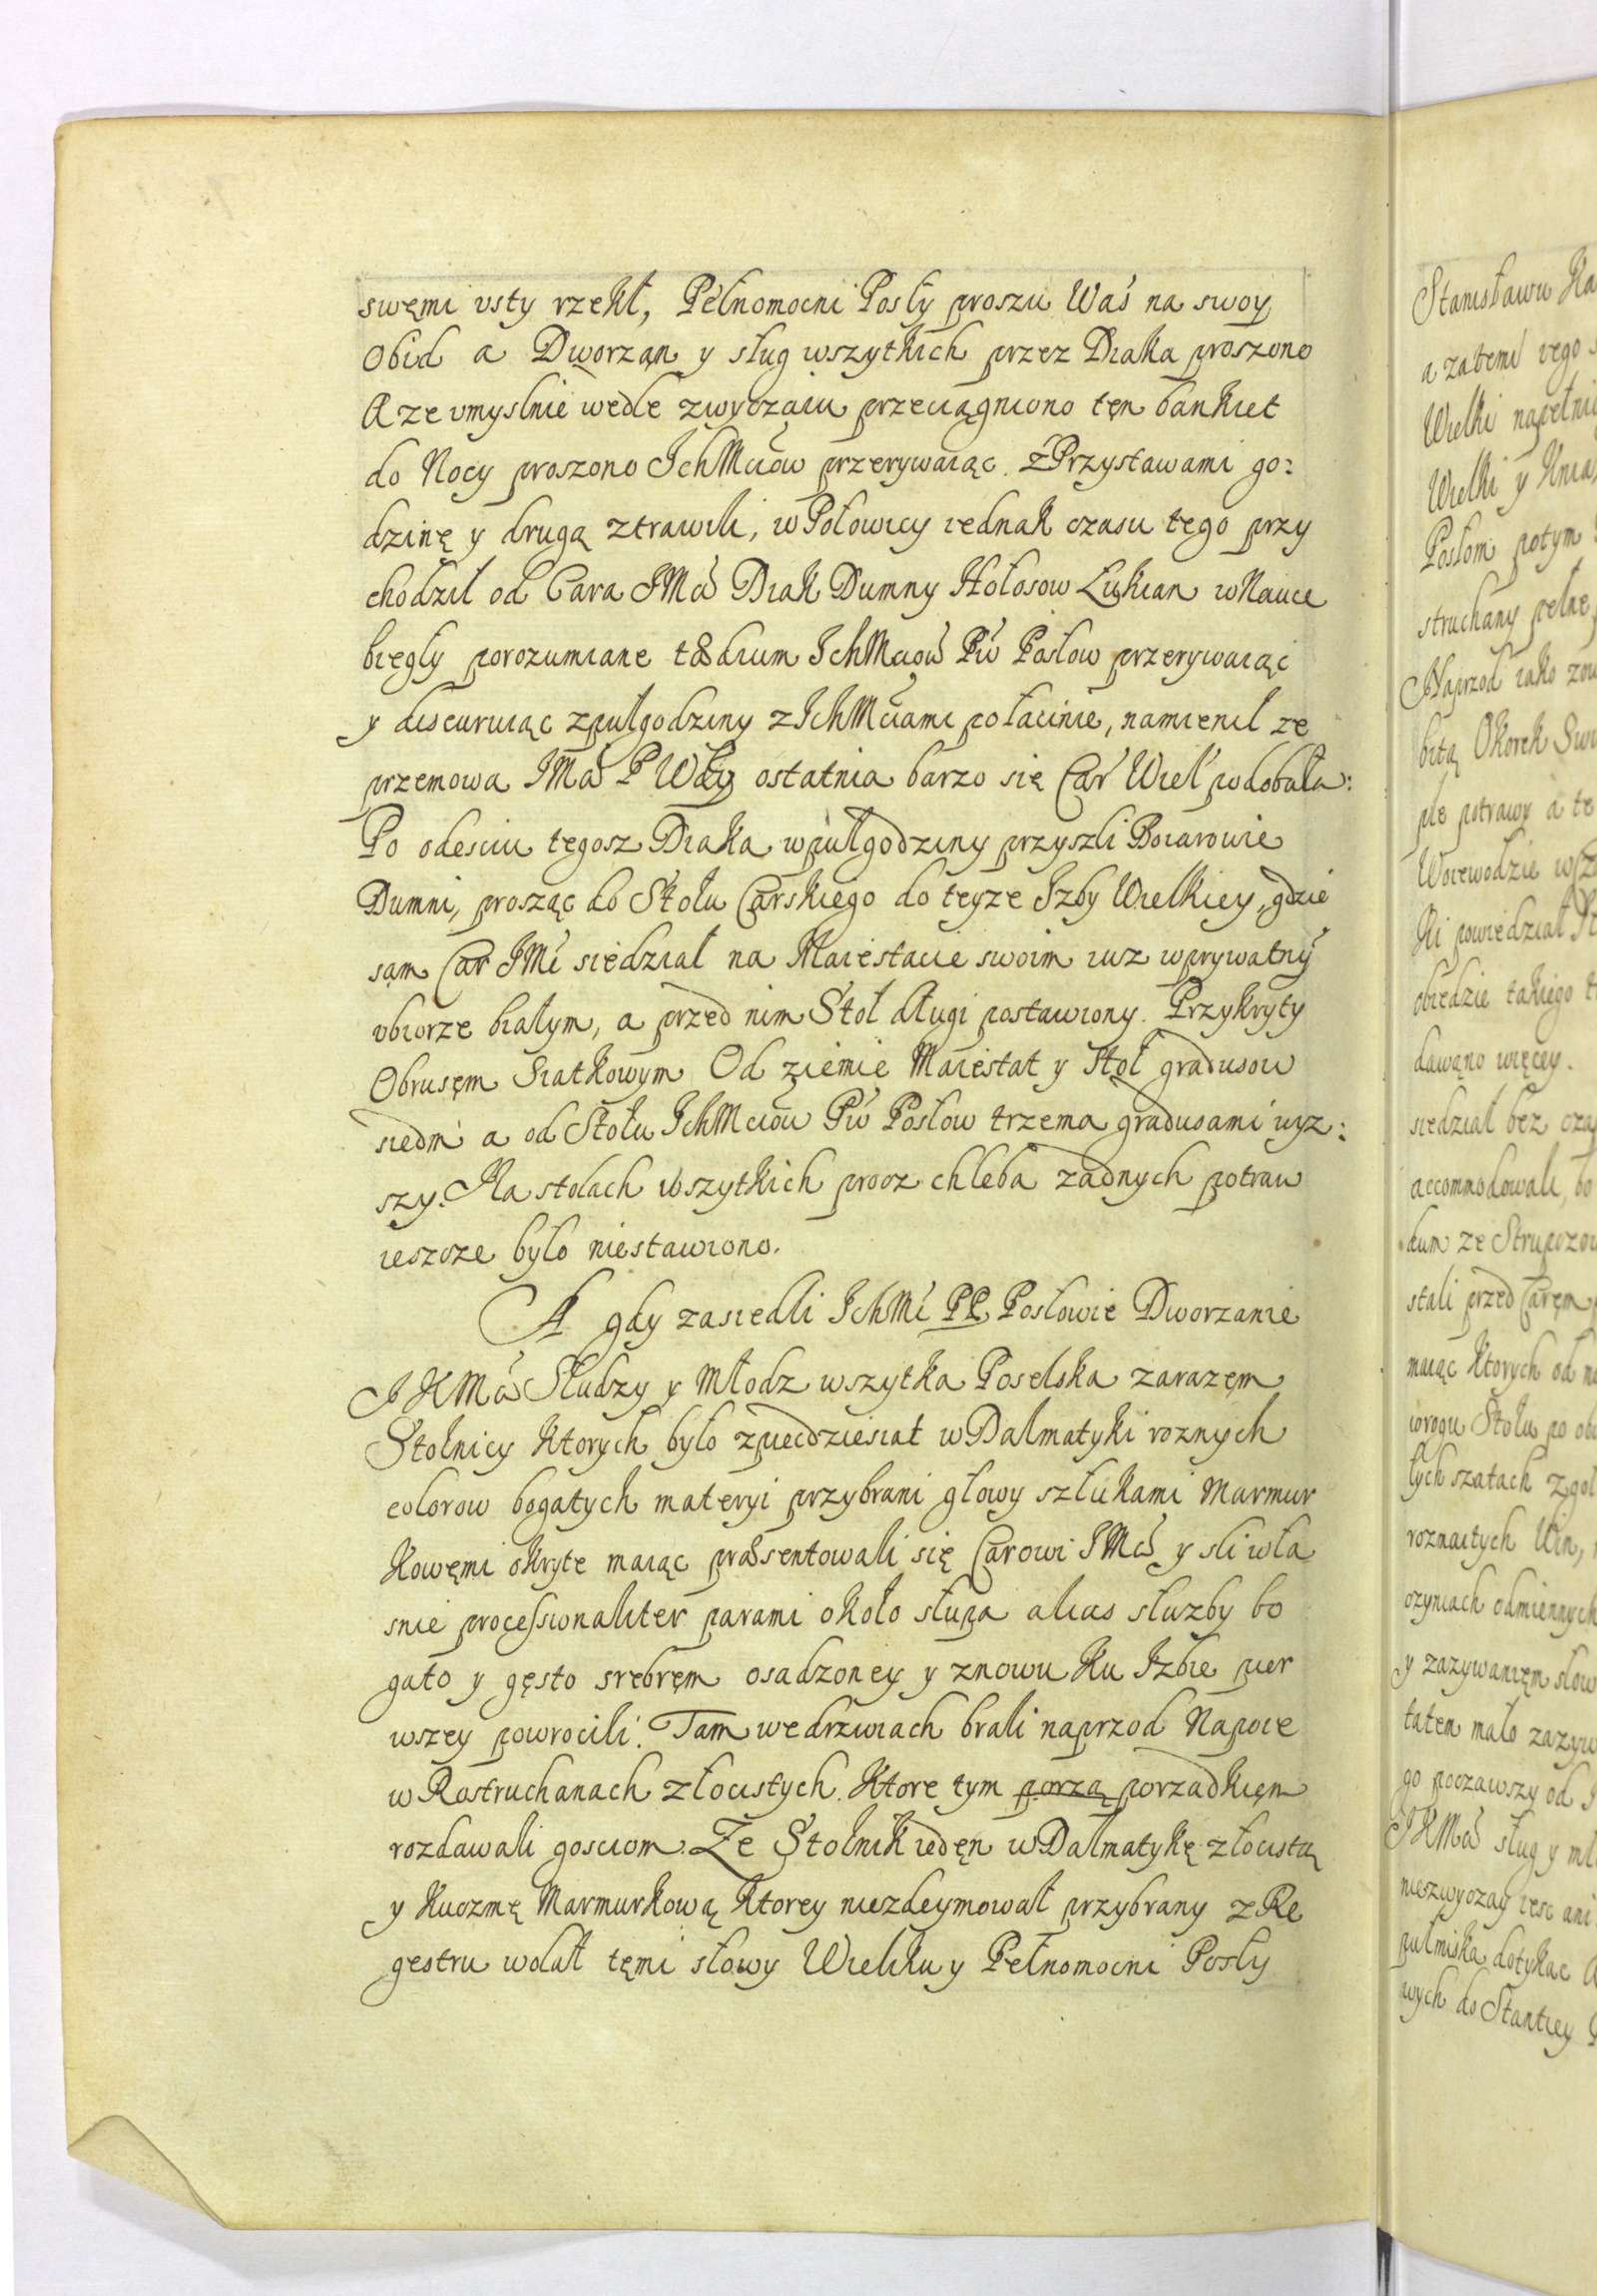 swęmi usty rzekł, Pełnomocni Posły proszu Waś na swoy
Obid a Dworzan y sług wszytkich przez Diaka proszono
A ze umyslnie wedle zwyczaiu przeciągniono tęn bankiet
do Nocy proszono IchMciow przerywaiąc. z Przystawami go:
dzinę y drugą ztrawili, w Połowicy iednak czasu tego przy
chodził od Cara JMci Diak Dumny Hołosow Łukian w Nauce
biegły porozumiane tædium IchMciow Pw Posłow przerywaiąc
y discuruiąc zpułgodziny z IchMciami połacinie, namienił ze
przemowa JMci P Wdy ostatnia barzo się Car Wiel podobała:
Po odesciu tegosz Diaka wpułgodziny przyszli Boiarowie
Dumni, prosząc do Stołu Carskiego do teyze Izby Wielkiey, gdzie
sam Car JMć siedział na Maiestacie swoim iuz wprywatny
ubiorze białym, a przed nim Stoł długi postawiony. Przykryty
Obrusęm Siatkowym Od ziemie Maiestat y Stoł gradusow
siedm a od Stołu IchMciow Pw Posłow trzema gradusami wyz:
szy. Na stolach wszytkich procz chleba zadnych potraw
ieszcze było niestawiono.
A gdy zasiedli IchMć PP. Posłowie Dworzanie
JKMci Słudzy y Młodz wszytka Poselska zarazęm
Stolnicy ktorych było zpiecdziesiat w Dalmatyki roznych
colorow bogatych materyi przybrani głowy szłukami Marmur
kowęmi okryte maiąc præsentowali się Carowi JMci y sli wła
snie processionaliter parami około słupa alias słuzby bo
gato y gęsto srebręm osadzoney y znowu ku Izbie pier
wszey powrocili. Tam wedrzwiach brali naprzod Napoie
w Rostruchanach złocistych. Ktore tym porzą porzadkięm
rozdawali gosciom. Ze Stolnik iedęn w Dalmatykę złocistą
y Kuczmę Marmurkową ktorey niezdeymował przybrany z Re
gestru wołał tęmi słowy Wieliku y Pełnomocni Posły
Stanisławu Ka
a zatemi
Wielki napełni
Wielki y Knia
Posłom potym
struchany pełne
Naprzod iako
bitą Okorek
ple potrawy a te
Woiewodzie
ki powiedział
obiedzie takiego
dawąno więcey.
siedział bez
accommodowali, bo
dum ze
stali przed Caręm
maiąc ktorych od
worogu Stołu po
łych szatach
roznaitych Win,
czyniach odmiennych
y zazywanięm słow
tatem mało
go poczawszy od
JKMci sług y mł
niezwyczay iesc ani
pułmiska dotykac
wych do Stantiey